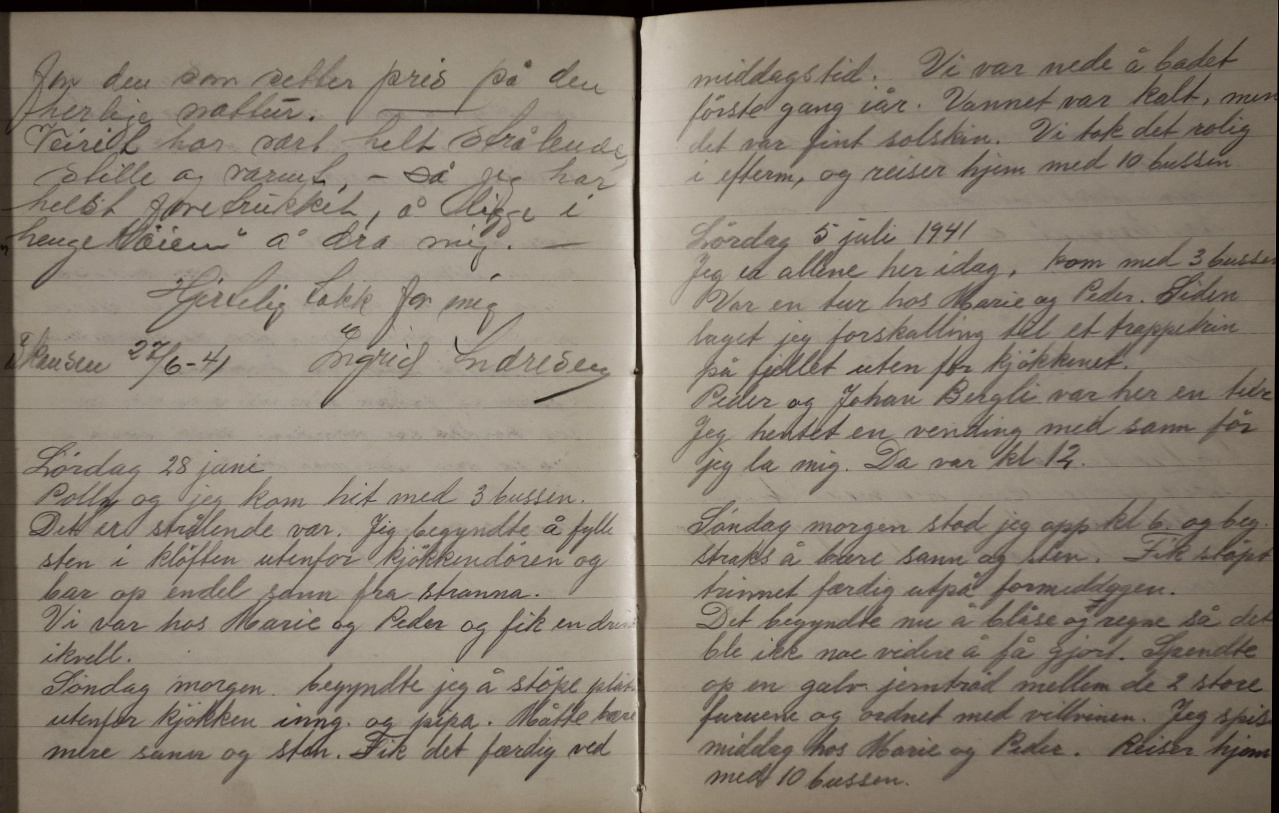 for den som setter pris på den
herlige nattur.
Veiret har vært helt strålende,
stille og varmt, – så jeg har
helst foretrukket, å ligge i
"hengekøien" å dra mig. –
Hjertelig takk for mig
27/6-41 Ingrid Andresen
Lördag 28 juni
Polly og jeg kom hit med 3 bussen.
Det er strålende vær. Jeg begyndte å fylle
sten i klöften utenfor kjökkendören og
bar op endel sann fra stranna.
Vi var hos Marie og Peder og fik en drink
ikvell.
Söndag morgen begyndte jeg å stöpe plat
utenfor kjökken inng. og pipa. Måtte bære
mere sann og sten. Fik det færdig ved
middagstid. Vi var nede å badet
förste gang iår. Vannet var kalt, men
det var fint solskin. Vi tok det rolig
i efterm, og reiser hjem med 10 bussen
Lördag 5 juli 1941
Jeg er allene her idag, kom med 3 bussen
Var en tur hos Marie og Peder. Siden
laget jeg forskalling til et trappetrin
på fjellet uten for kjökkenet.
Peder og Johan Bergli var her en tur
Jeg hentet en vending med sann för
jeg la mig. Da var kl 12.
Söndag morgen stod jeg opp kl 6. og beg.
straks å bære sann og sten. Fik stöpt
trinnet færdig utpå formiddagen.
Det begyndte nu å blåse og regne så det
ble ikk noe videre å få gjort. Spendte
op en galv. jerntråd mellem de 2 store
furuene og ordnet med villvinen. Jeg spis
middag hos Marie og Peder. Reiser hjem
med 10 bussen.